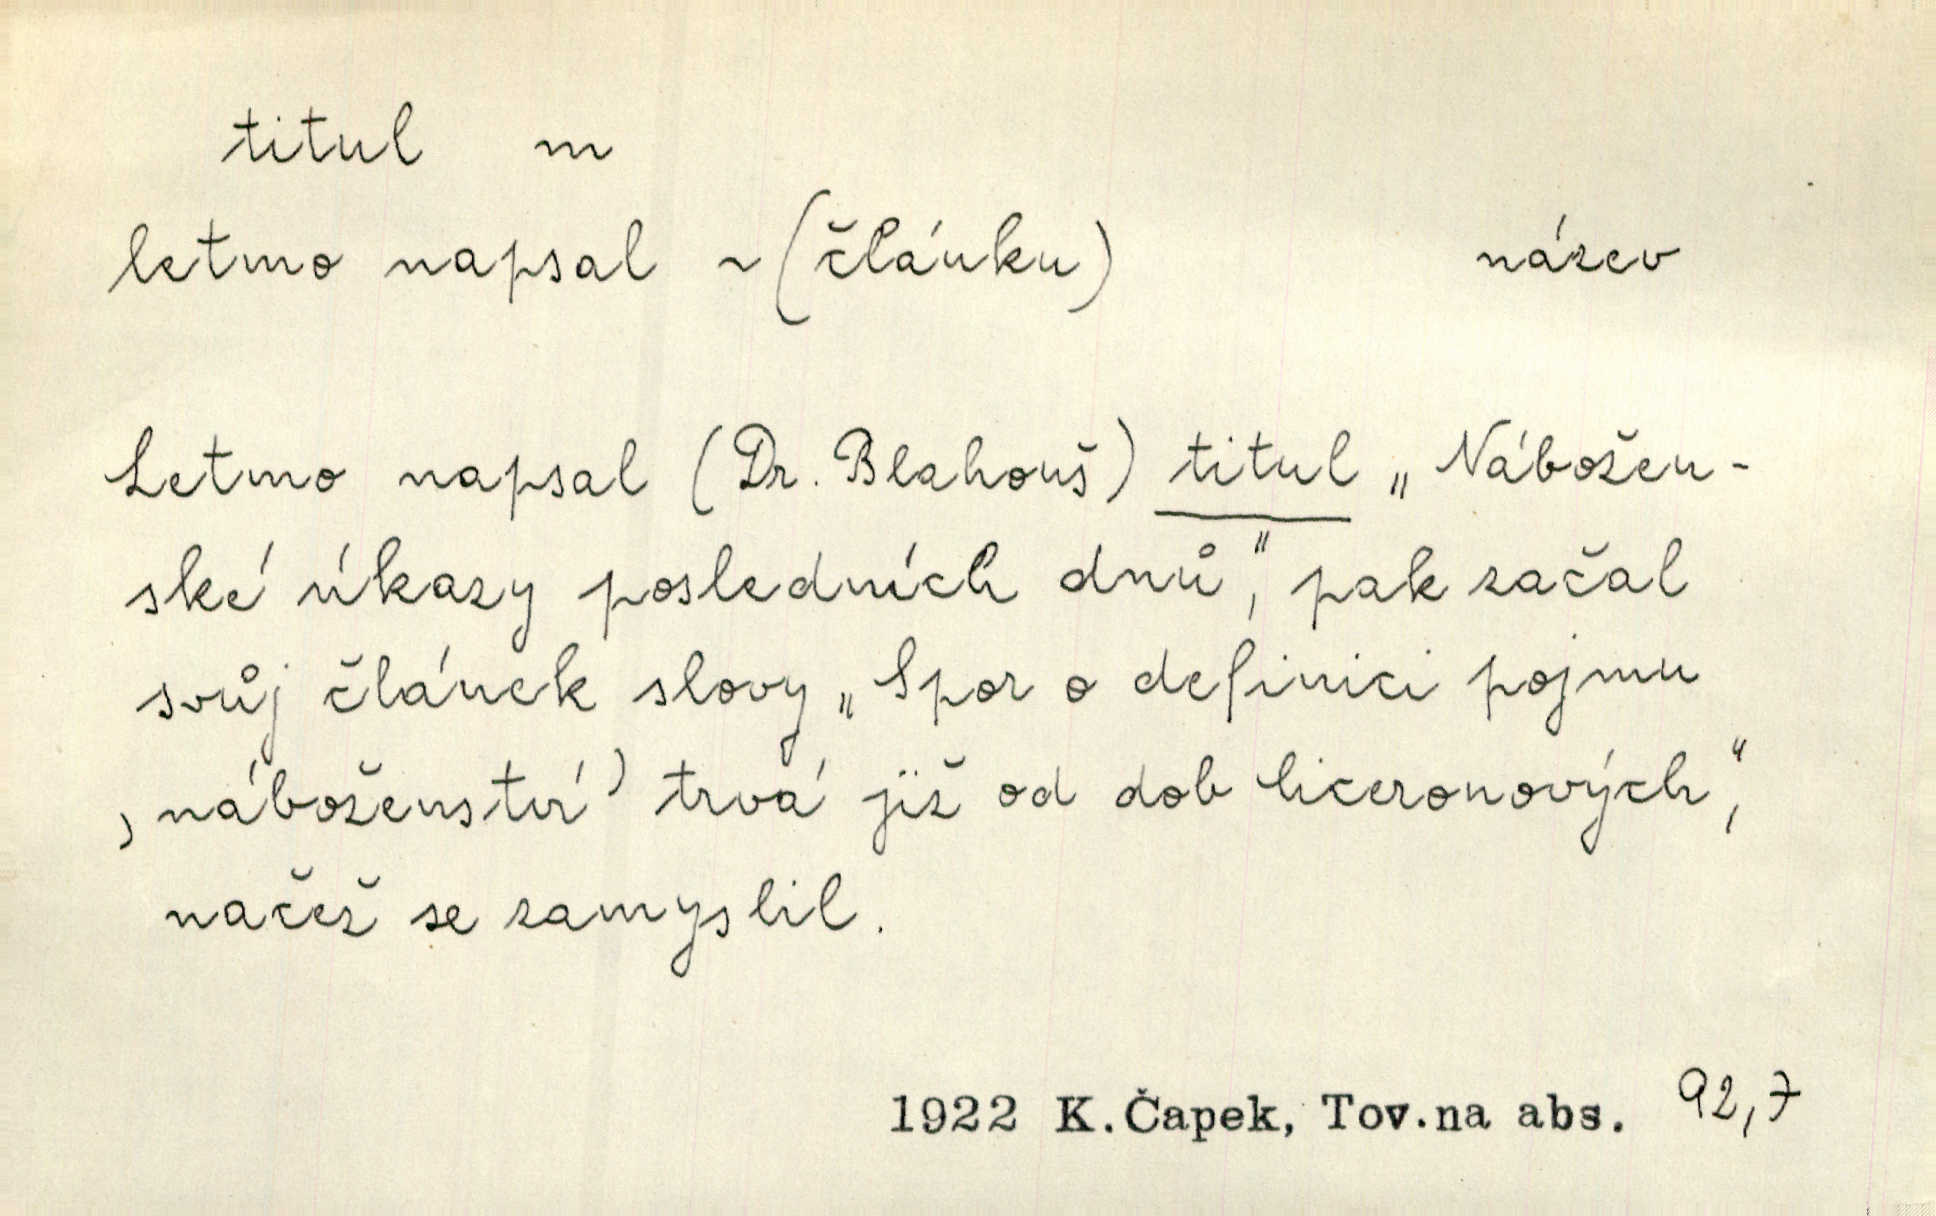 titul m
letmo napsal ~ (článku) název
Letmo napsal (Dr. Blahouš) titul „Nábožen-
ské úkazy posledních dnů“, pak začal
svůj článek slovy „Spor o definici pojmu
‚náboženství’ trvá již od dob Ciceronových“,
načež se zamyslil.
1922 K.Čapek, Tov.na abs. 92,7